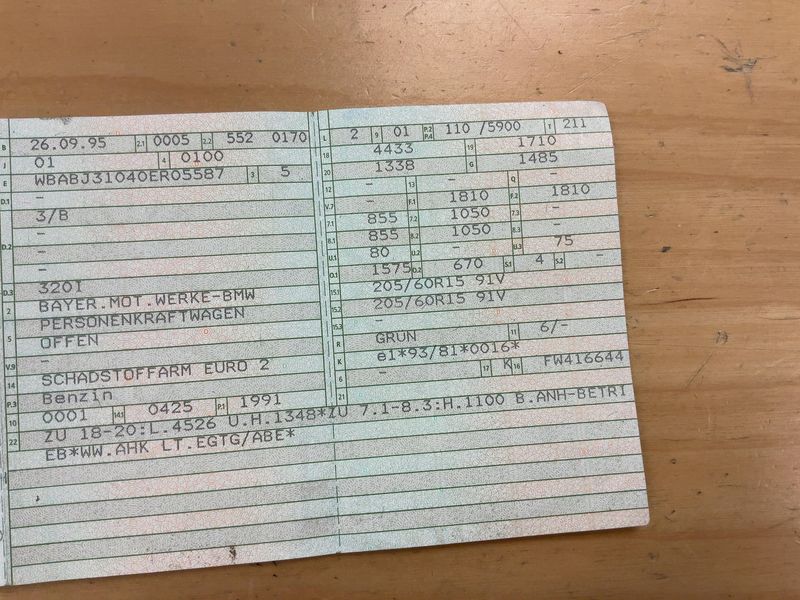 B 26.09.95 2.1 0005 2.2 552 0170
J 01 4 0100
E WBABJ31040ER05587 3 5
D.1 -
3/B
-
D.2 -
-
D.3 320I
2 BAYER.MOT.WERKE-BMW
PERSONENKRAFTWAGEN
5 OFFEN
V.9 -
14 SCHADSTOFFARM EURO 2
P.3 Benzin
10 0001 14.1 0425 P.1 1991
L 2 9 01 P.2 P.4 110 /5900 T 211
18 4433 19 1710
20 1338 G 1485
12 - 13 - Q -
V.7 - F.1 1810 F.2 1810
7.1 855 7.2 1050 7.3 -
8.1 855 8.2 1050 8.3 -
U.1 80 U.2 - U.3 75
O.1 1575 O.2 670 S.1 4 S.2 -
15.1 205/60R15 91V
15.2 205/60R15 91V
15.3 -
R GRÜN 11 6/-
K e1*93/81*0016*
6 - 17 K 16 FW416644
21
22 ZU 18-20:L.4526 U.H.1348*ZU 7.1-8.3:H.1100 B.ANH-BETRI
EB*WW.AHK LT.EGTG/ABE*